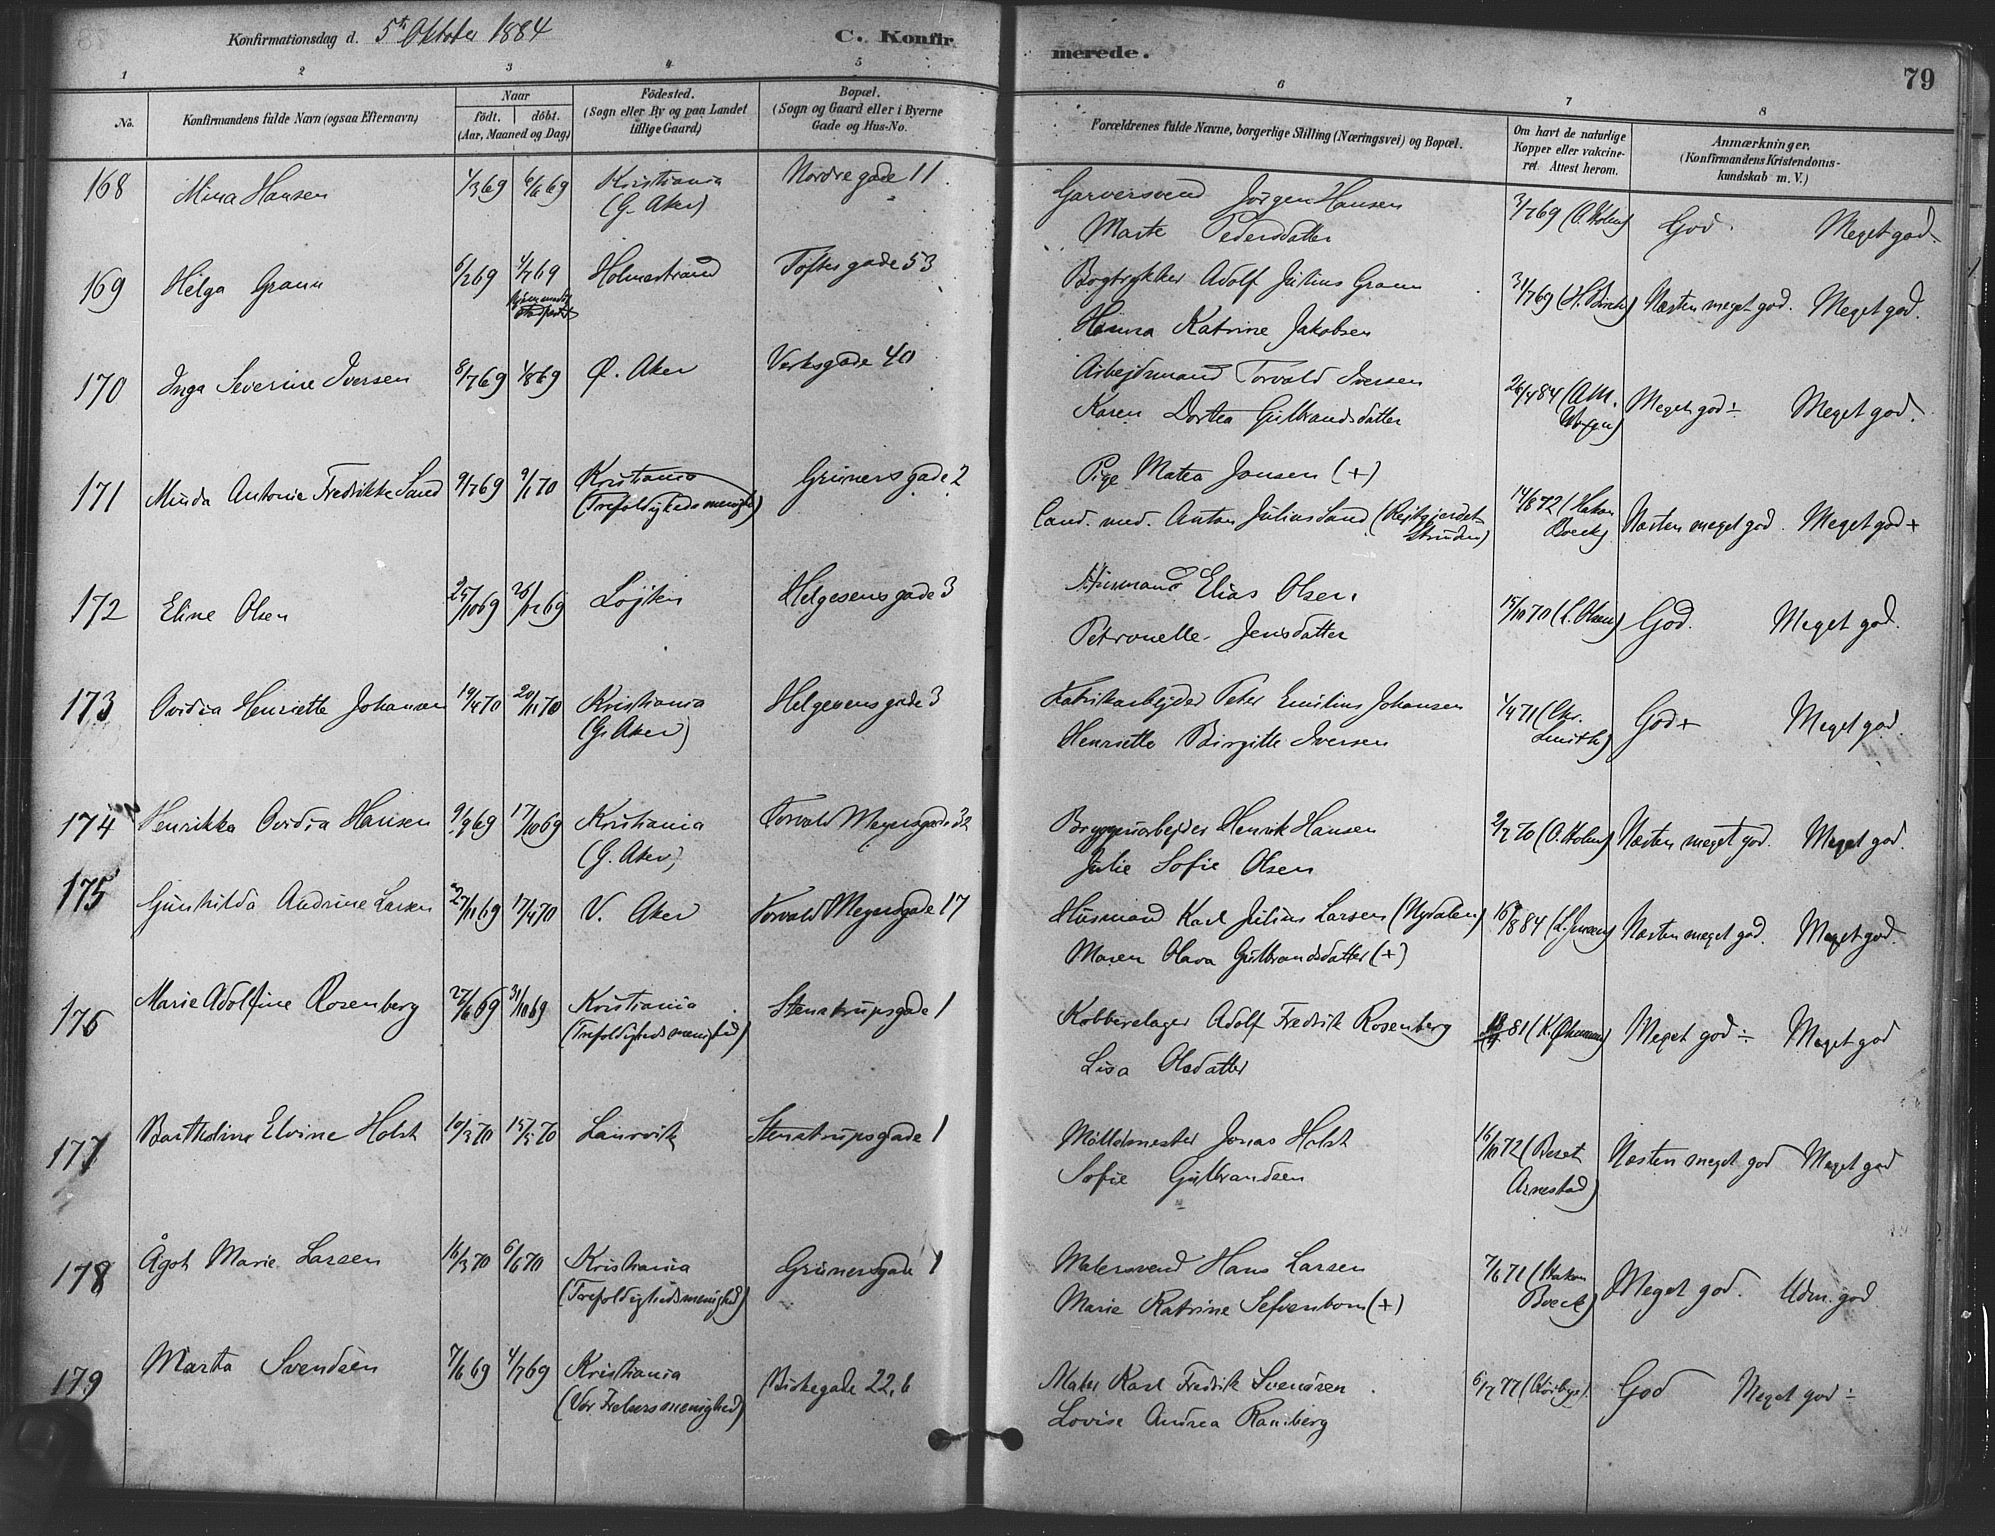 Konfirmationsdag d. 5te Oktober 1884 C. Konfirmerede. 79
1 2 3 4 5 6 7 8
No. Konfirmandens fulde Navn (ogsaa Efternavn) Naar født. døbt. (Aar, Maaned og Dag) Fødested. (Sogn eller By og paa Landet tillige Gaard) Bopæl. (Sogn og Gaard eller i Byerne Gade og Hus-No. Forældrenes fulde Navne, borgerlige Stilling (Næringsvei) og Bopæl. Om havt de naturlige Kopper eller vakcineret. Attest herom. Anmærkninger. (Konfirmandens Kristendomskundskab m. V.)
168 Mina Hansen 1/3 69 6/6 69 Kristiania Nordregade 11 Garversvend Jørgen Hansen 3/7 69 (A. Holm) God Meget god
(G. Aker) Marte Pedersdatter
169 Helga Gram 6/2 69 4/7 69 Holmestrand Toftesgade 53 Bogtrykker Adolf Julius Gram 3/7 69 (H. Birch) Næsten meget god. Meget god.
Hanna Katrine Jakobsen
170 Inga Severine Iversen 8/7 69 1/8 69 Ø. Aker Verksgade 40 Arbejdsmand Torvald Iversen 26/4 84 (A.M. Meget god ÷ Meget god.
Karen Dortea Gulbrandsdatter
171 Minda Antonie Fredrikke Sand 9/7 69 9/1 70 Kristiania Grünersgade 2 Pige Matea Jansen (+)
(Trefoldighedsmenighed) Cand. med. Anton Julius Sand 14/8 72 (Hakon Boeck) Næsten meget god. Meget god +
172 Eline Olsen 25/10 69 26/12 69 Løjten Helgesensgade 3 Husmand Elias Olsen
Petronelle Jensdatter 15/10 70 (L. Olsen) God. Meget god.
173 Ovidia Henriette Johansen 19/4 70 20/11 70 Kristiania Helgesensgade 3 Fabrikarbejder Peter Emilius Johansen 1/4 71 (Chr. Smith) God + Meget god.
(G. Aker) Henriette Birgitte Iversen
174 Henrikka Ovidia Hansen 9/9 69 17/10 69 Kristiania Torvald Meyersgade 32 Bryggeriarbejder Henrik Hansen 2/7 70 (A. Holm) Næsten meget god. Meget god.
(G. Aker) Julie Sofie Olsen
175 Gunhilda Andrine Larsen 27/11 69 17/4 70 V. Aker Torvald Meyersgade 17 Husmand Karl Julius Larsen (Nydalen) 16/8 84 (L. Jensen) Næsten meget god. Meget god.
Maren Olava Gulbrandsdatter (+)
176 Marie Adolfine Rosenberg 27/6 69 31/10 69 Kristiania Stenstrupsgade 1 Kobberslager Adolf Fredrik Rosenberg 81 Meget god ÷ Meget god
(Trefoldighedsmenighed) Lisa Olsdatter
177 Bartholine Elvine Holst 10/3 70 15/5 70 Laurvik Stenstrupsgade 1 Møllemester Jonas Holst 16/10 72 (Berent Arnestad) Næsten meget god Meget god
Sofie Gulbrandsen
178 Ågot Marie Larsen 16/3 70 6/6 70 Kristiania Grünersgade 1 Malersvend Hans Larsen 7/6 71 (Hakon Boeck) Meget god. Udm. god
(Trefoldighedsmenighed) Marie Katrine (+)
179 Marta Svendsen 7/6 69 4/7 69 Kristiania Birkegade 22, b Maler Karl Fredrik Svendsen 6/7 77 God Meget god ÷
(Vor Frelsersmenighed) Lovise Andrea Ramberg